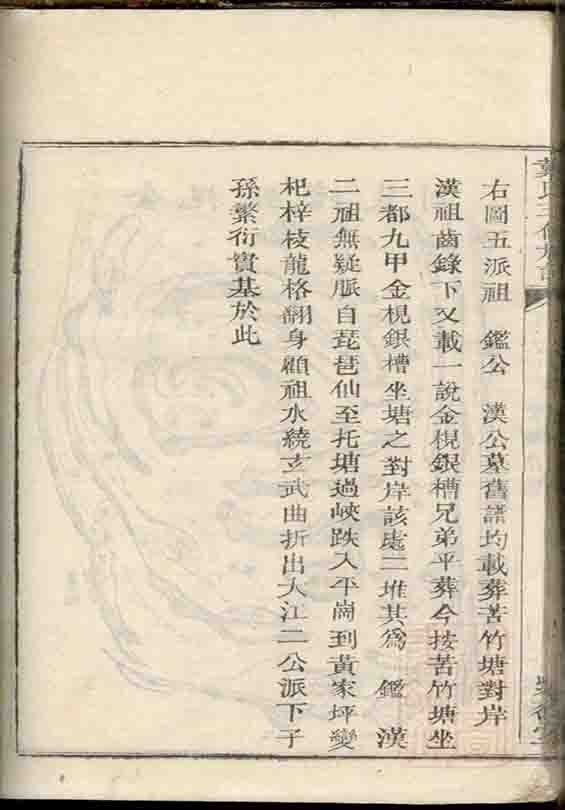 右圖五派祖　鑑公　漢公墓舊譜均載葬苦竹塘對岸
漢祖齒錄下又載一說金梘銀槽兄弟平葬今按苦竹塘坐
三都九甲金梘銀槽坐塘之對岸該處二堆其爲　鑑　漢
二祖無疑脈自琵琶仙至托塘過峽跌入平崗到黃家坪變
杞梓枝龍格翻身顧祖水繞玄武曲折出大江二公派下子
孫繁衍實基於此